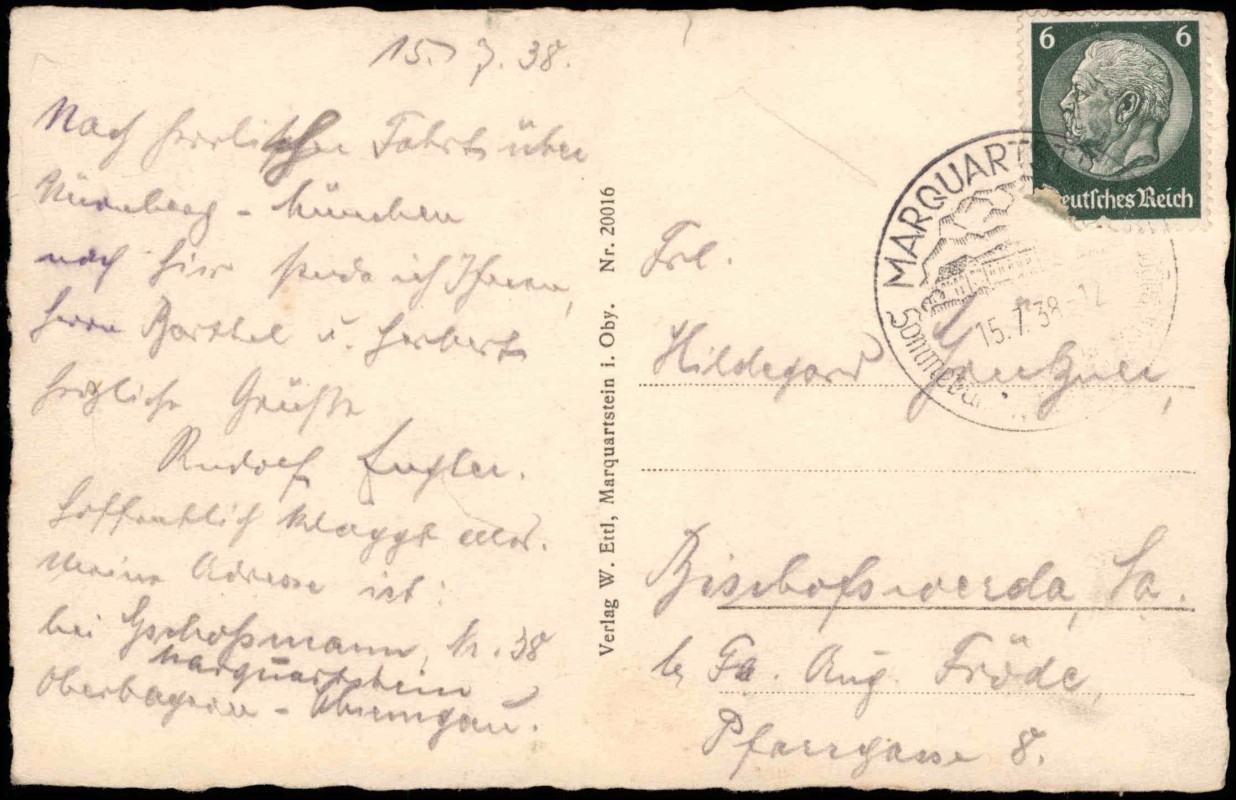 15. 7. 38.
Nach herrlicher Fahrt über
Nürnberg - München
nach hier sende ich Ihnen,
Herrn Barthel u. Herbert
herzliche Grüße
Rudolf Engler.
Hoffentlich klappt alles.
Meine Adresse ist:
bei Gschoßmann, Nr. 38
Marquartstein
Oberbayern - Chiemgau.
Verlag W. Ettl, Marquartstein i. Oby. Nr. 20016
6 6
Deutsches Reich
MARQUARTSTEIN
15.7.38-12
Frl.
Hildegard
Bischofswerda, Sa.
b. Fa. Aug. Fröde,
Pfarrgasse 8.